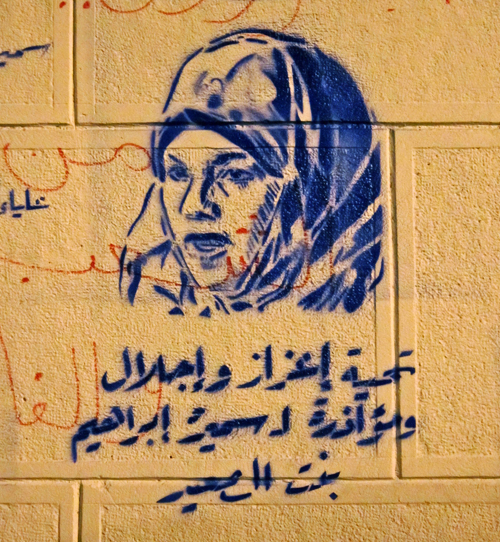 من
تحية إعزاز وإجلال
ومؤاذرة لـ سميرة إبراهيم
بنت الصعيد